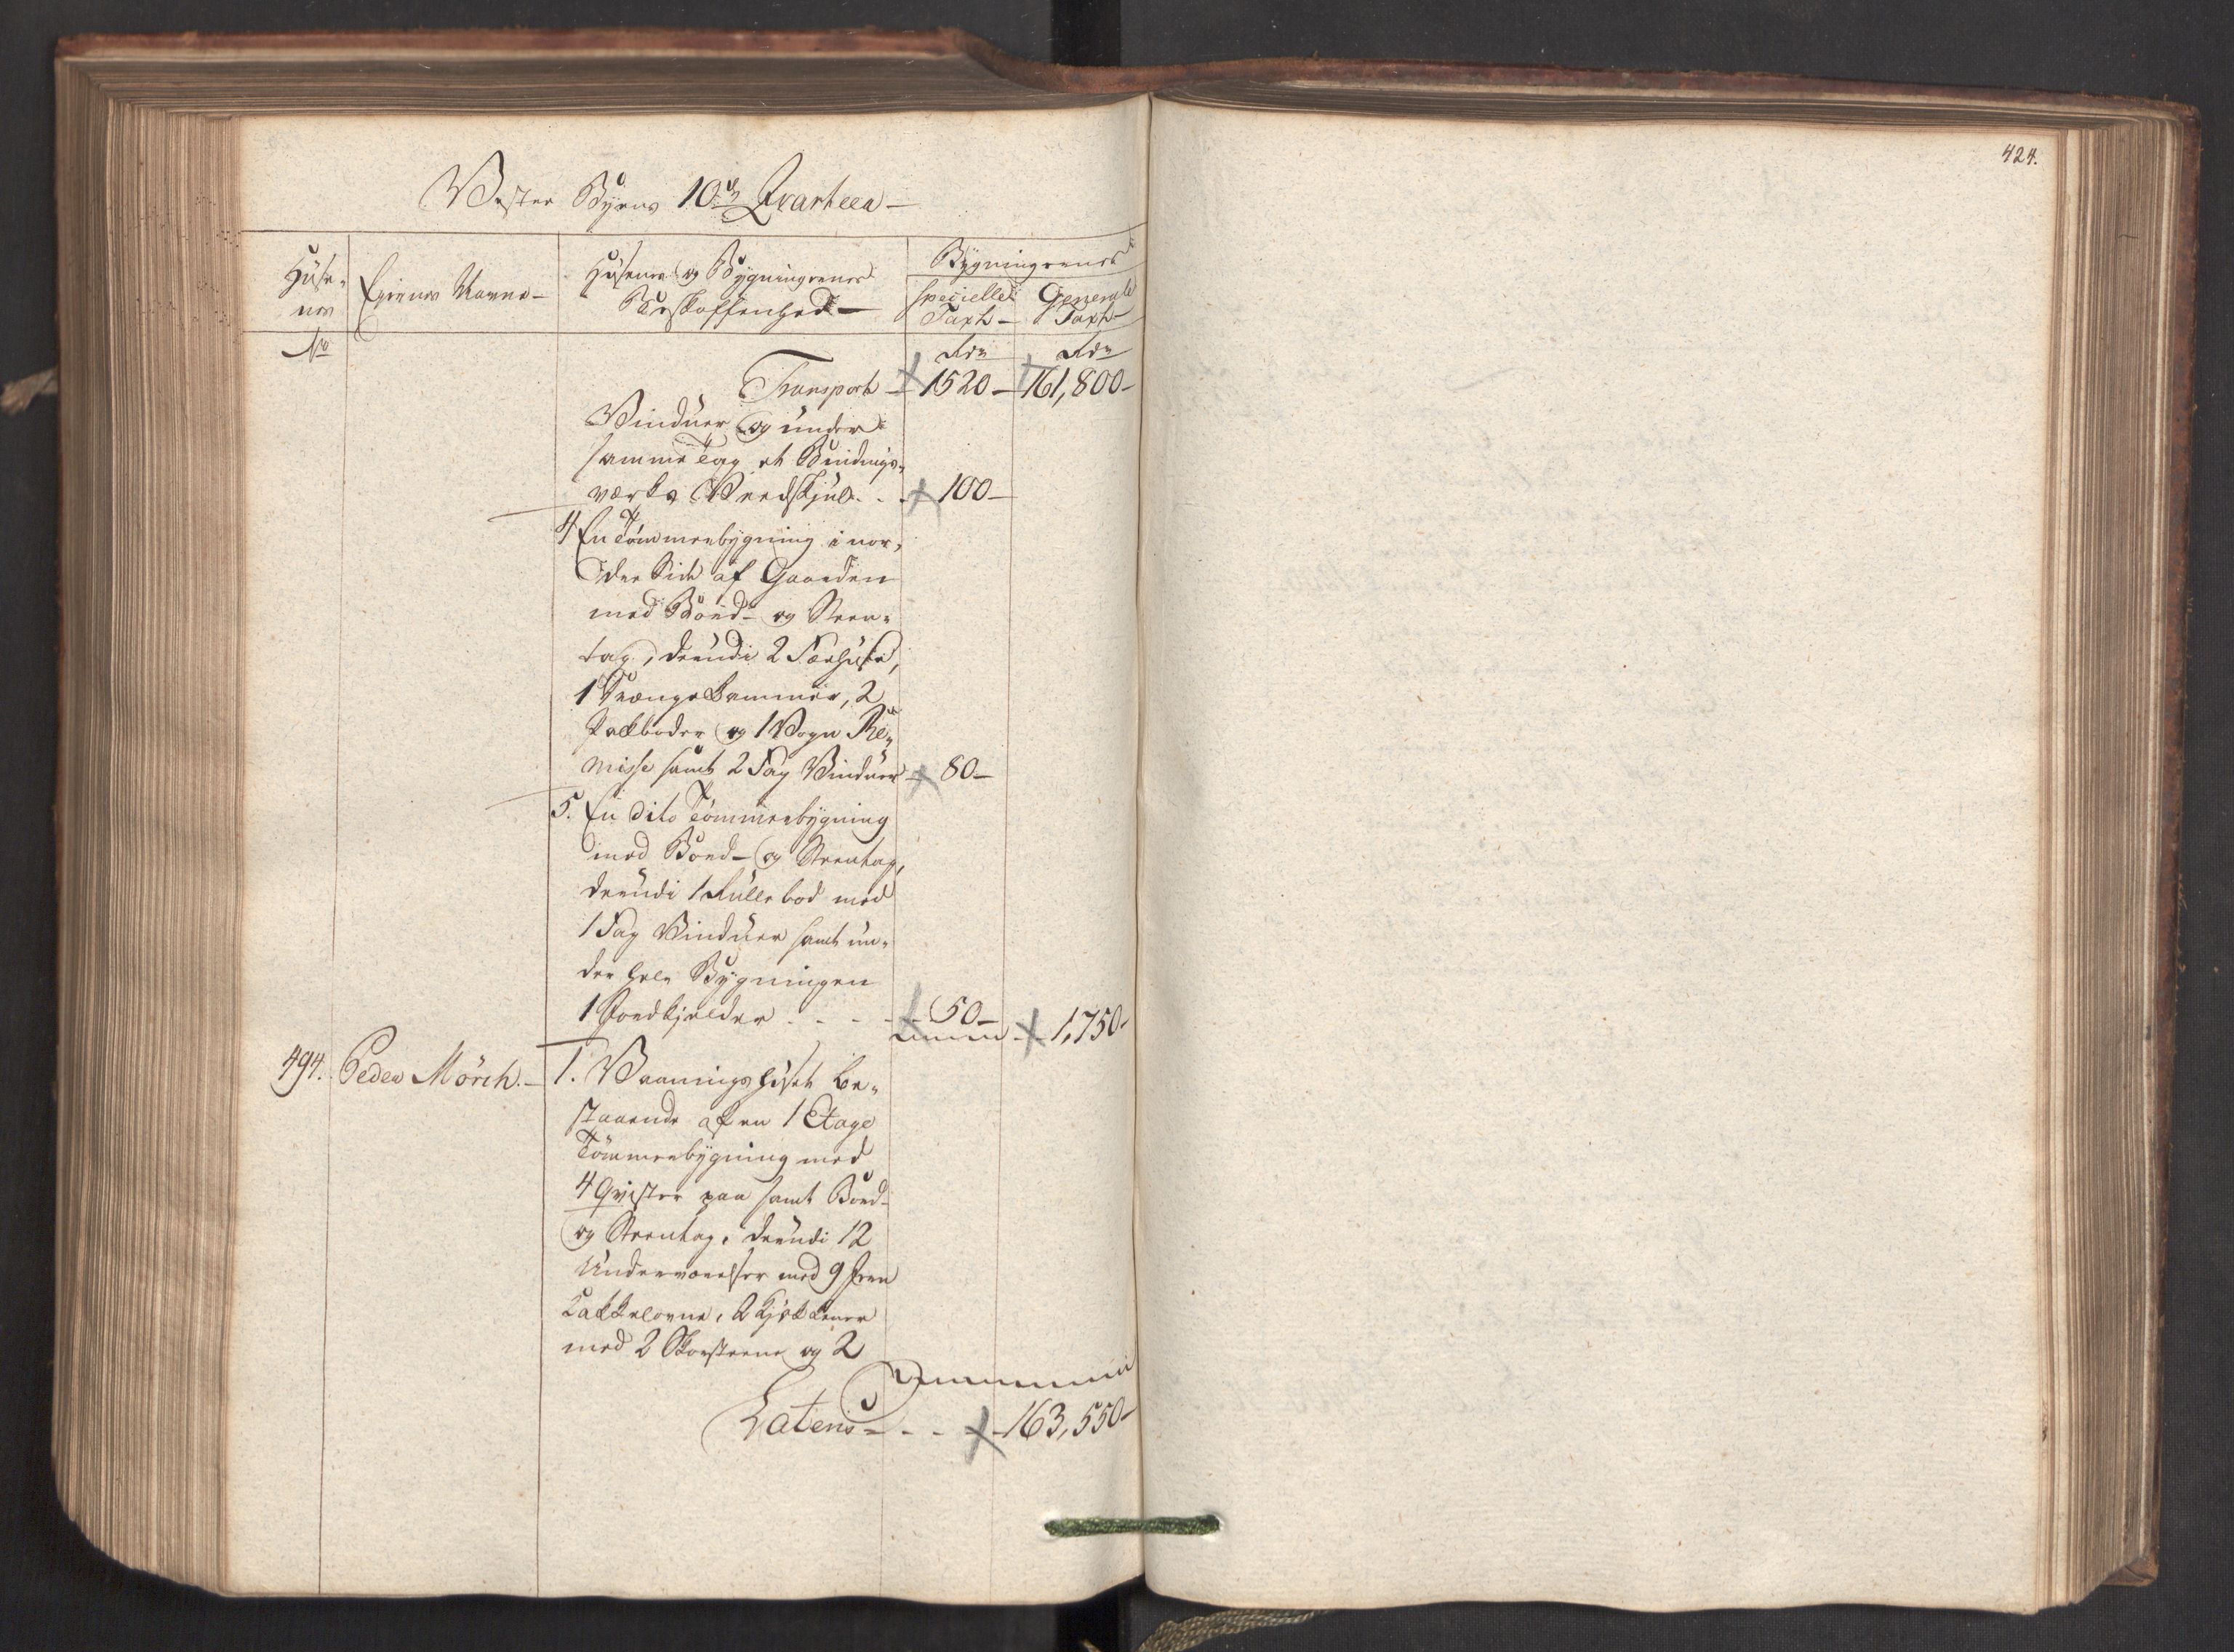 424.
Vester Byens 10de Qvarteer —
Huse-
nes
No
Eyernes Navne —
Husenes og Bygningernes
Beskaffenhed —
Bygningernes
specielle
Taxt —
Generale
Taxt —
Rdr
Rdr
Transport — 1520 — 161,800 —
Vinduer og under
samme Tag et Bindings-
værks Veedskjul . . . 100 —
4 En Tømmerbygning i nor-
dre Side af Gaarden
med Bord- og Steen-
tag, derudi 2 Færhuse,
1 Kammer, 2
Pakboder og 1 Vogn Re-
misse samt 2 Fag Vinduer — 80 —
5. En dito Tømmerbygning
med Bord- og Steentag,
derudi 1 Rullebod med
1 Fag Vinduer samt un-
der hele Bygningen
1 Jordkjelder . . . . 50 — 1,750 -
494. Peder Mörch. — 1. Vaaningshuset be-
staaende af en 1 Etage
Tømmerbygning med
4 Qvister paa samt Bord-
og Steentag, derudi 12
Underværelser med 9 Jern
Kakkelovne, 2 Kjøkkener
med 2 Skorsteene og 2
Lateris . . . 163,550 -